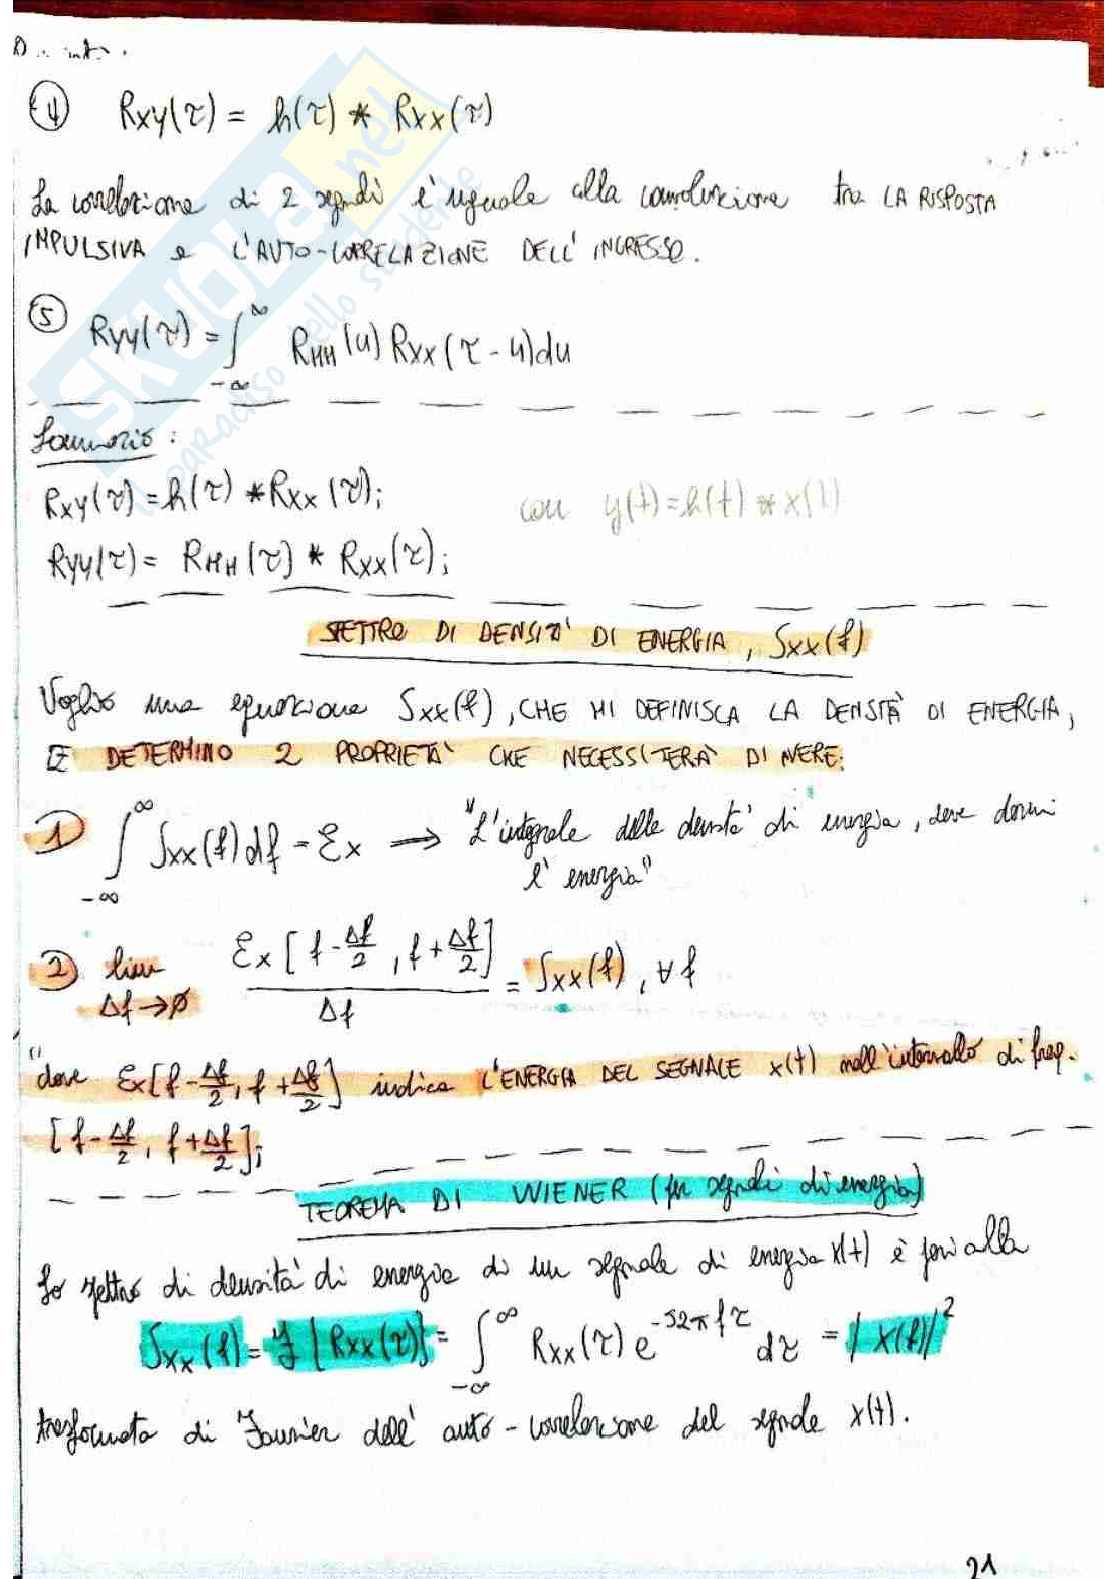 ④ Rxy(τ) = h(τ) * Rxx(τ)
La correlazione di 2 segnali è uguale alla convoluzione tra LA RISPOSTA
IMPULSIVA e L'AUTO-CORRELAZIONE DELL'INGRESSO.
⑤ Ryy(τ) = ∫_{-∞}^{∞} RHH(u) Rxx(τ - u)du
Sommario:
Rxy(τ) = h(τ) * Rxx(τ); con y(t) = h(t) * x(t)
Ryy(τ) = RHH(τ) * Rxx(τ);
SPETTRO DI DENSITA' DI ENERGIA, Sxx(f)
Voglio una equazione Sxx(f), CHE MI DEFINISCA LA DENSTÀ DI ENERGIA,
E DETERMINO 2 PROPRIETA' CHE NECESSITERA' DI AVERE:
1) ∫_{-∞}^{∞} Sxx(f)df = Ex ⟹ "L'integrale della densita' di energia, deve darmi
l'energia"
2) lim Δf→0 Ex[f-Δf/2, f+Δf/2] / Δf = Sxx(f), ∀f
"dove Ex[f-Δf/2, f+Δf/2] indica L'ENERGIA DEL SEGNALE x(t) nell'intervallo di freq.
[f-Δf/2, f+Δf/2];
TEOREMA DI WIENER (per segnali di energia)
Lo spettro di densità di energia di un segnale di energia x(t) è pari alla
Sxx(f) = F{Rxx(τ)} = ∫_{-∞}^{∞} Rxx(τ) e^{-J2πfτ} dτ = |X(f)|²
trasformata di Fourier dell'auto-correlazione del segnale x(t).
21
SKUOLA.net
il paradiso dello studente